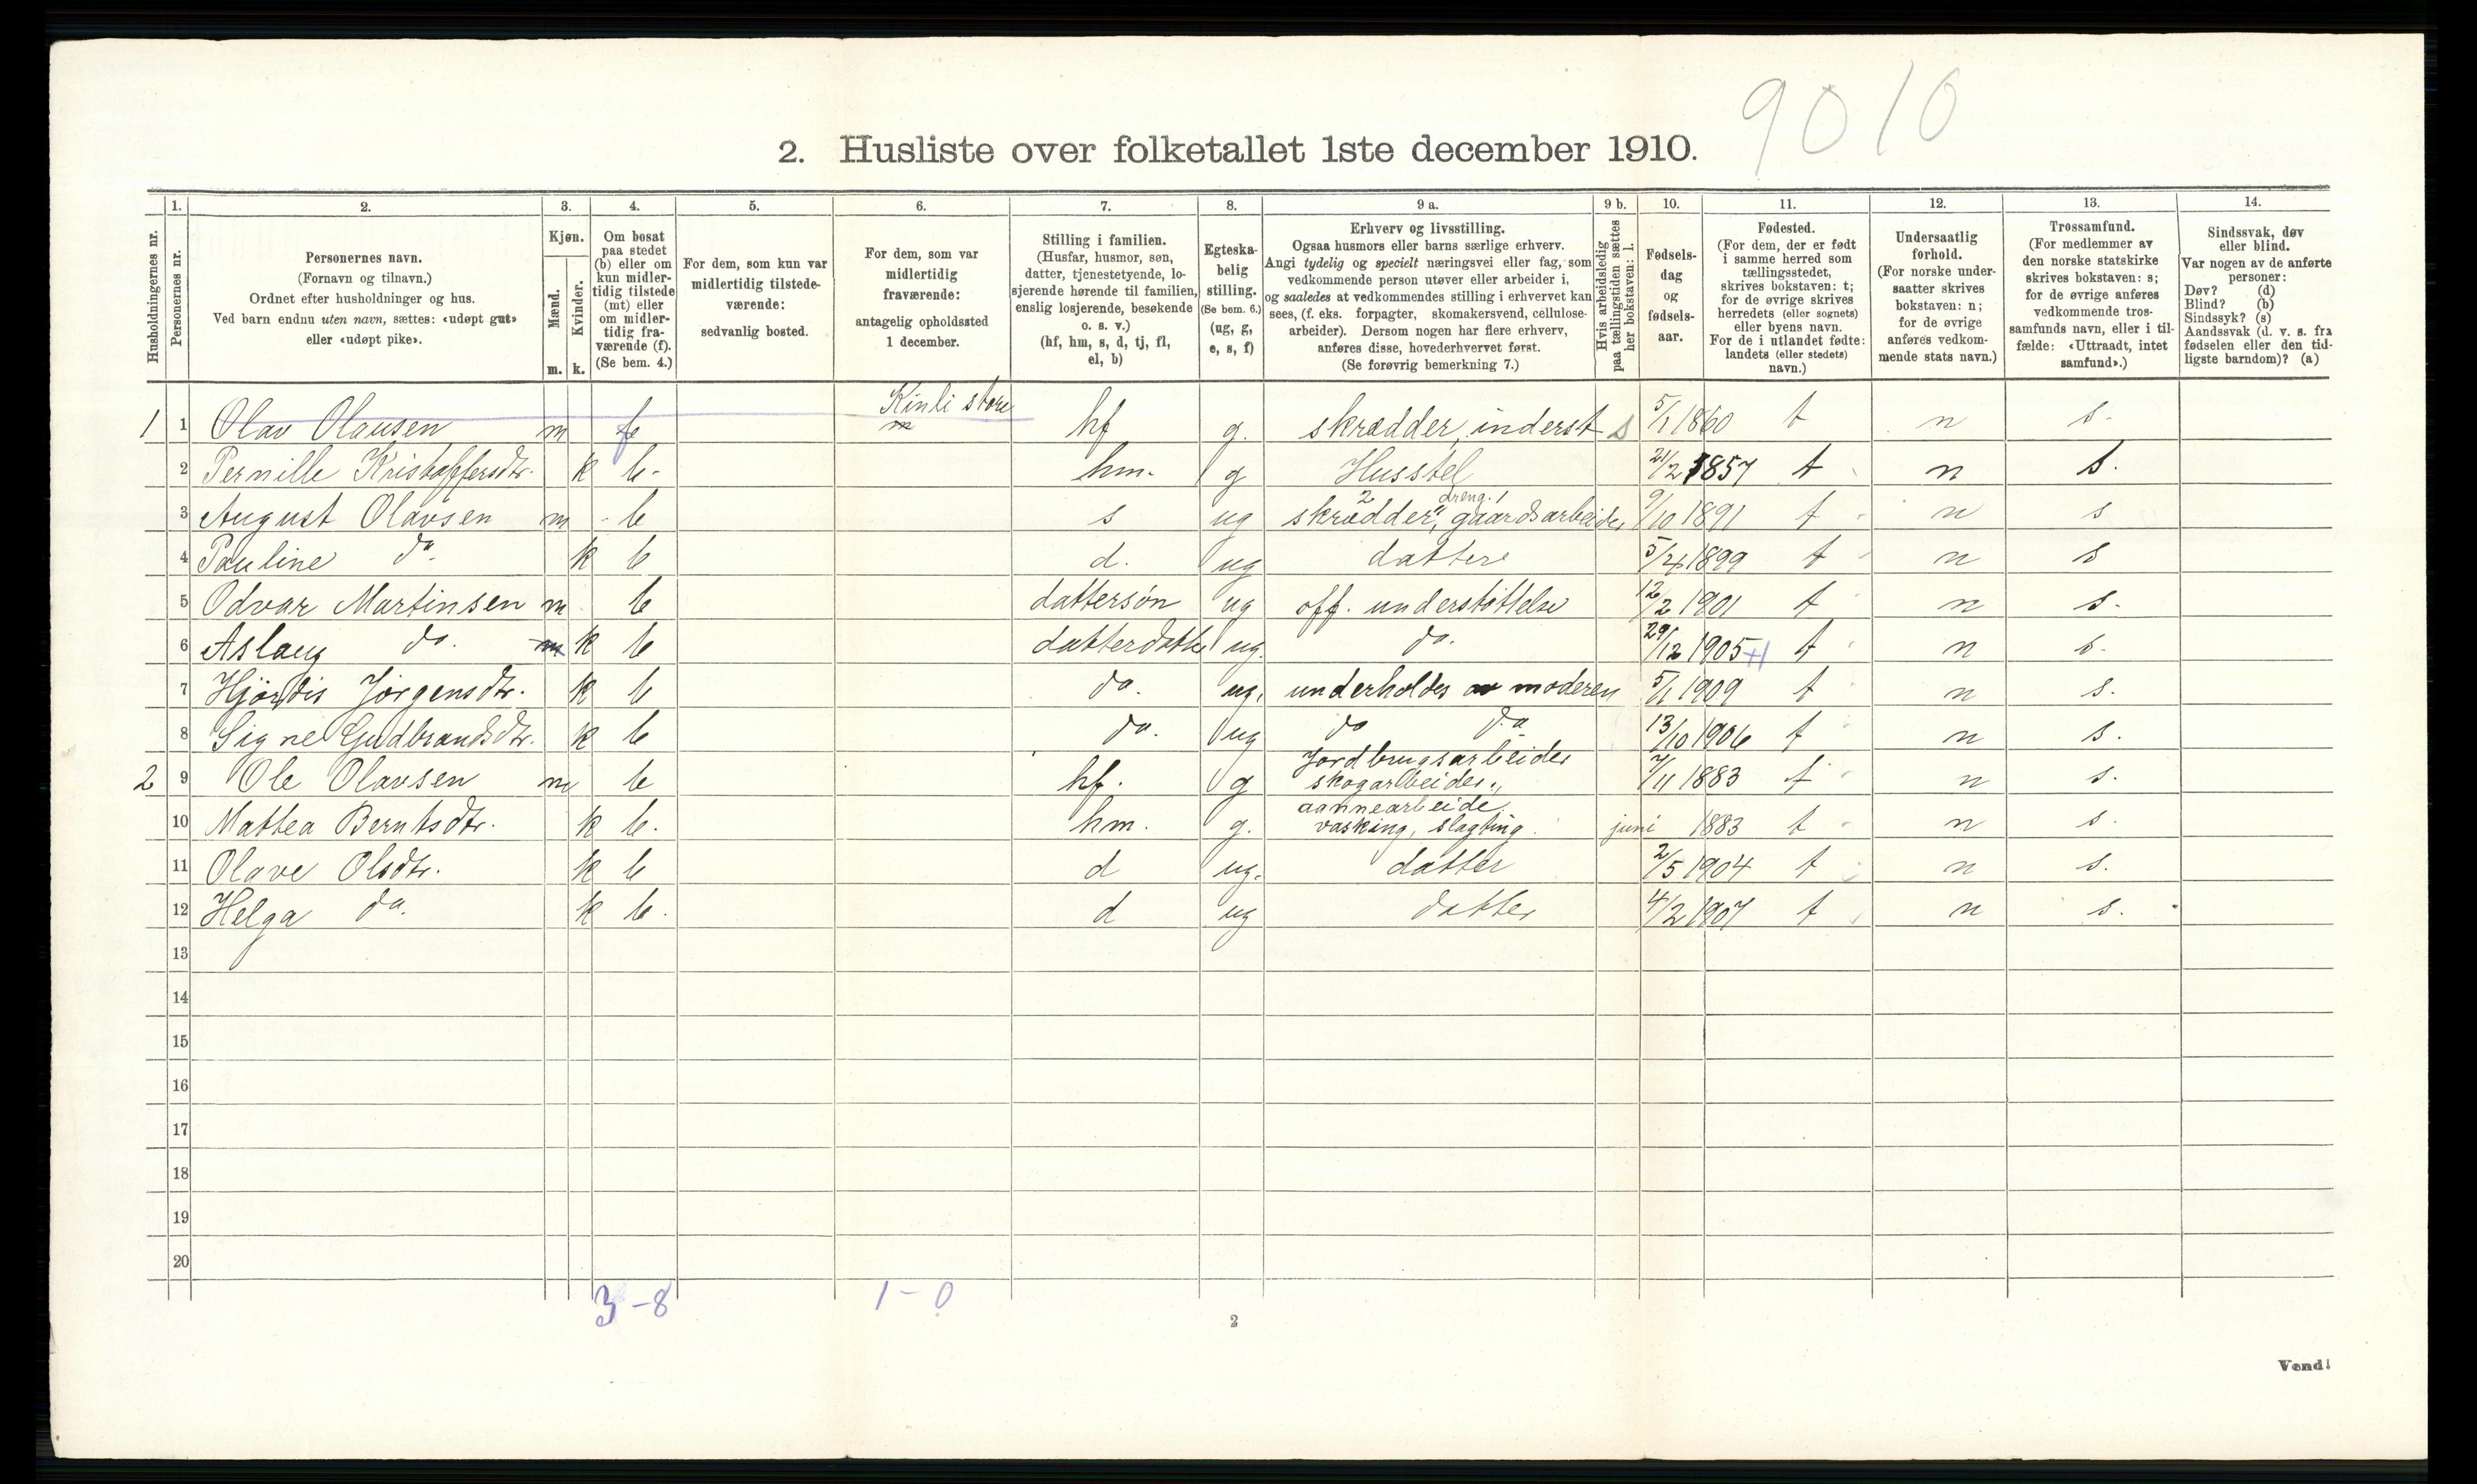 9010
2. Husliste over folketallet 1ste december 1910.
Husholdningernes nr.
1.
Personernes nr.
2.
Personernes navn.
(Fornavn og tilnavn.)
Ordnet efter husholdninger og hus.
Ved barn endnu uten navn, sættes: «udøpt gut»
eller «udøpt pike».
3.
Kjøn.
Mænd.
Kvinder.
m. k.
4.
Om bosat
paa stedet
(b) eller om
kun midler-
tidig tilstede
(mt) eller
om midler-
tidig fra-
værende (f).
(Se bem. 4.)
5.
For dem, som kun var
midlertidig tilstede-
værende:
sedvanlig bosted.
6.
For dem, som var
midlertidig
fraværende:
antagelig opholdssted
1 december.
7.
Stilling i familien.
(Husfar, husmor, søn,
datter, tjenestetyende, lo-
sjerende hørende til familien,
enslig losjerende, besøkende
o. s. v.)
(hf, hm, s, d, tj, fl,
el, b)
8.
Egteska-
belig
stilling.
(Se bem. 6.)
(ug, g,
e, s, f)
9 a.
Erhverv og livsstilling.
Ogsaa husmors eller barns særlige erhverv.
Angi tydelig og specielt næringsvei eller fag, som
vedkommende person utøver eller arbeider i,
og saaledes at vedkommendes stilling i erhvervet kan
sees, (f. eks. forpagter, skomakersvend, cellulose-
arbeider). Dersom nogen har flere erhverv,
anføres disse, hovederhvervet først.
(Se forøvrig bemerkning 7.)
9 b.
Hvis arbeidsledig
paa tællingstiden sættes
her bokstaven: l.
10.
Fødsels-
dag
og
fødsels-
aar.
11.
Fødested.
(For dem, der er født
i samme herred som
tællingsstedet,
skrives bokstaven: t;
for de øvrige skrives
herredets (eller sognets)
eller byens navn.
For de i utlandet fødte:
landets (eller stedets)
navn.)
12.
Undersaatlig
forhold.
(For norske under-
saatter skrives
bokstaven: n;
for de øvrige
anføres vedkom-
mende stats navn.)
13.
Trossamfund.
(For medlemmer av
den norske statskirke
skrives bokstaven: s;
for de øvrige anføres
vedkommende tros-
samfunds navn, eller i til-
fælde: «Uttraadt, intet
samfund».)
14.
Sindssvak, døv
eller blind.
Var nogen av de anførte
personer:
Døv? (d)
Blind? (b)
Sindssyk? (s)
Aandssvak (d. v. s. fra
fødselen eller den tid-
ligste barndom)? (a)
1 1 Olav Olausen m f Kinli store hf g. skrædder, inderst s 5/1 1860 t n s.
2 Pernille Kristoffersdtr. k b. hm. g Husstel 21/2 1857 t n s.
3 August Olavsen m b s ug skrædder 2 dreng, gaardsarbeider 1 9/10 1891 t n s
4 Pauline do. k b d. ug datter 5/4 1899 t n s
5 Odvar Martinsen m b dattersøn ug off. understøttelse 12/2 1901 t n s.
6 Aslaug do. m k b datterdatter ug. do. 29/12 1905 t n s.
7 Hjørdis Jørgensdtr. k b do. ug. underholdes av moderen 5/1 1909 t n s.
8 Signe Gudbrandsdtr. k b do. ug do do 13/10 1906 t n s.
2 9 Ole Olavsen m b hf. g Jordbrugsarbeider
skogarbeider 7/11 1883 t n s.
10 Mattea Berntsdtr. k b. hm. g. aannearbeide.
vasking, slagting. juni 1883 t n s.
11 Olave Olsdtr. k b d ug. datter 2/5 1904 t n s.
12 Helga do. k b. d ug datter 4/2 1907 t n s.
13
14
15
16
17
18
19
20
3-8 1-0
2
Vend!